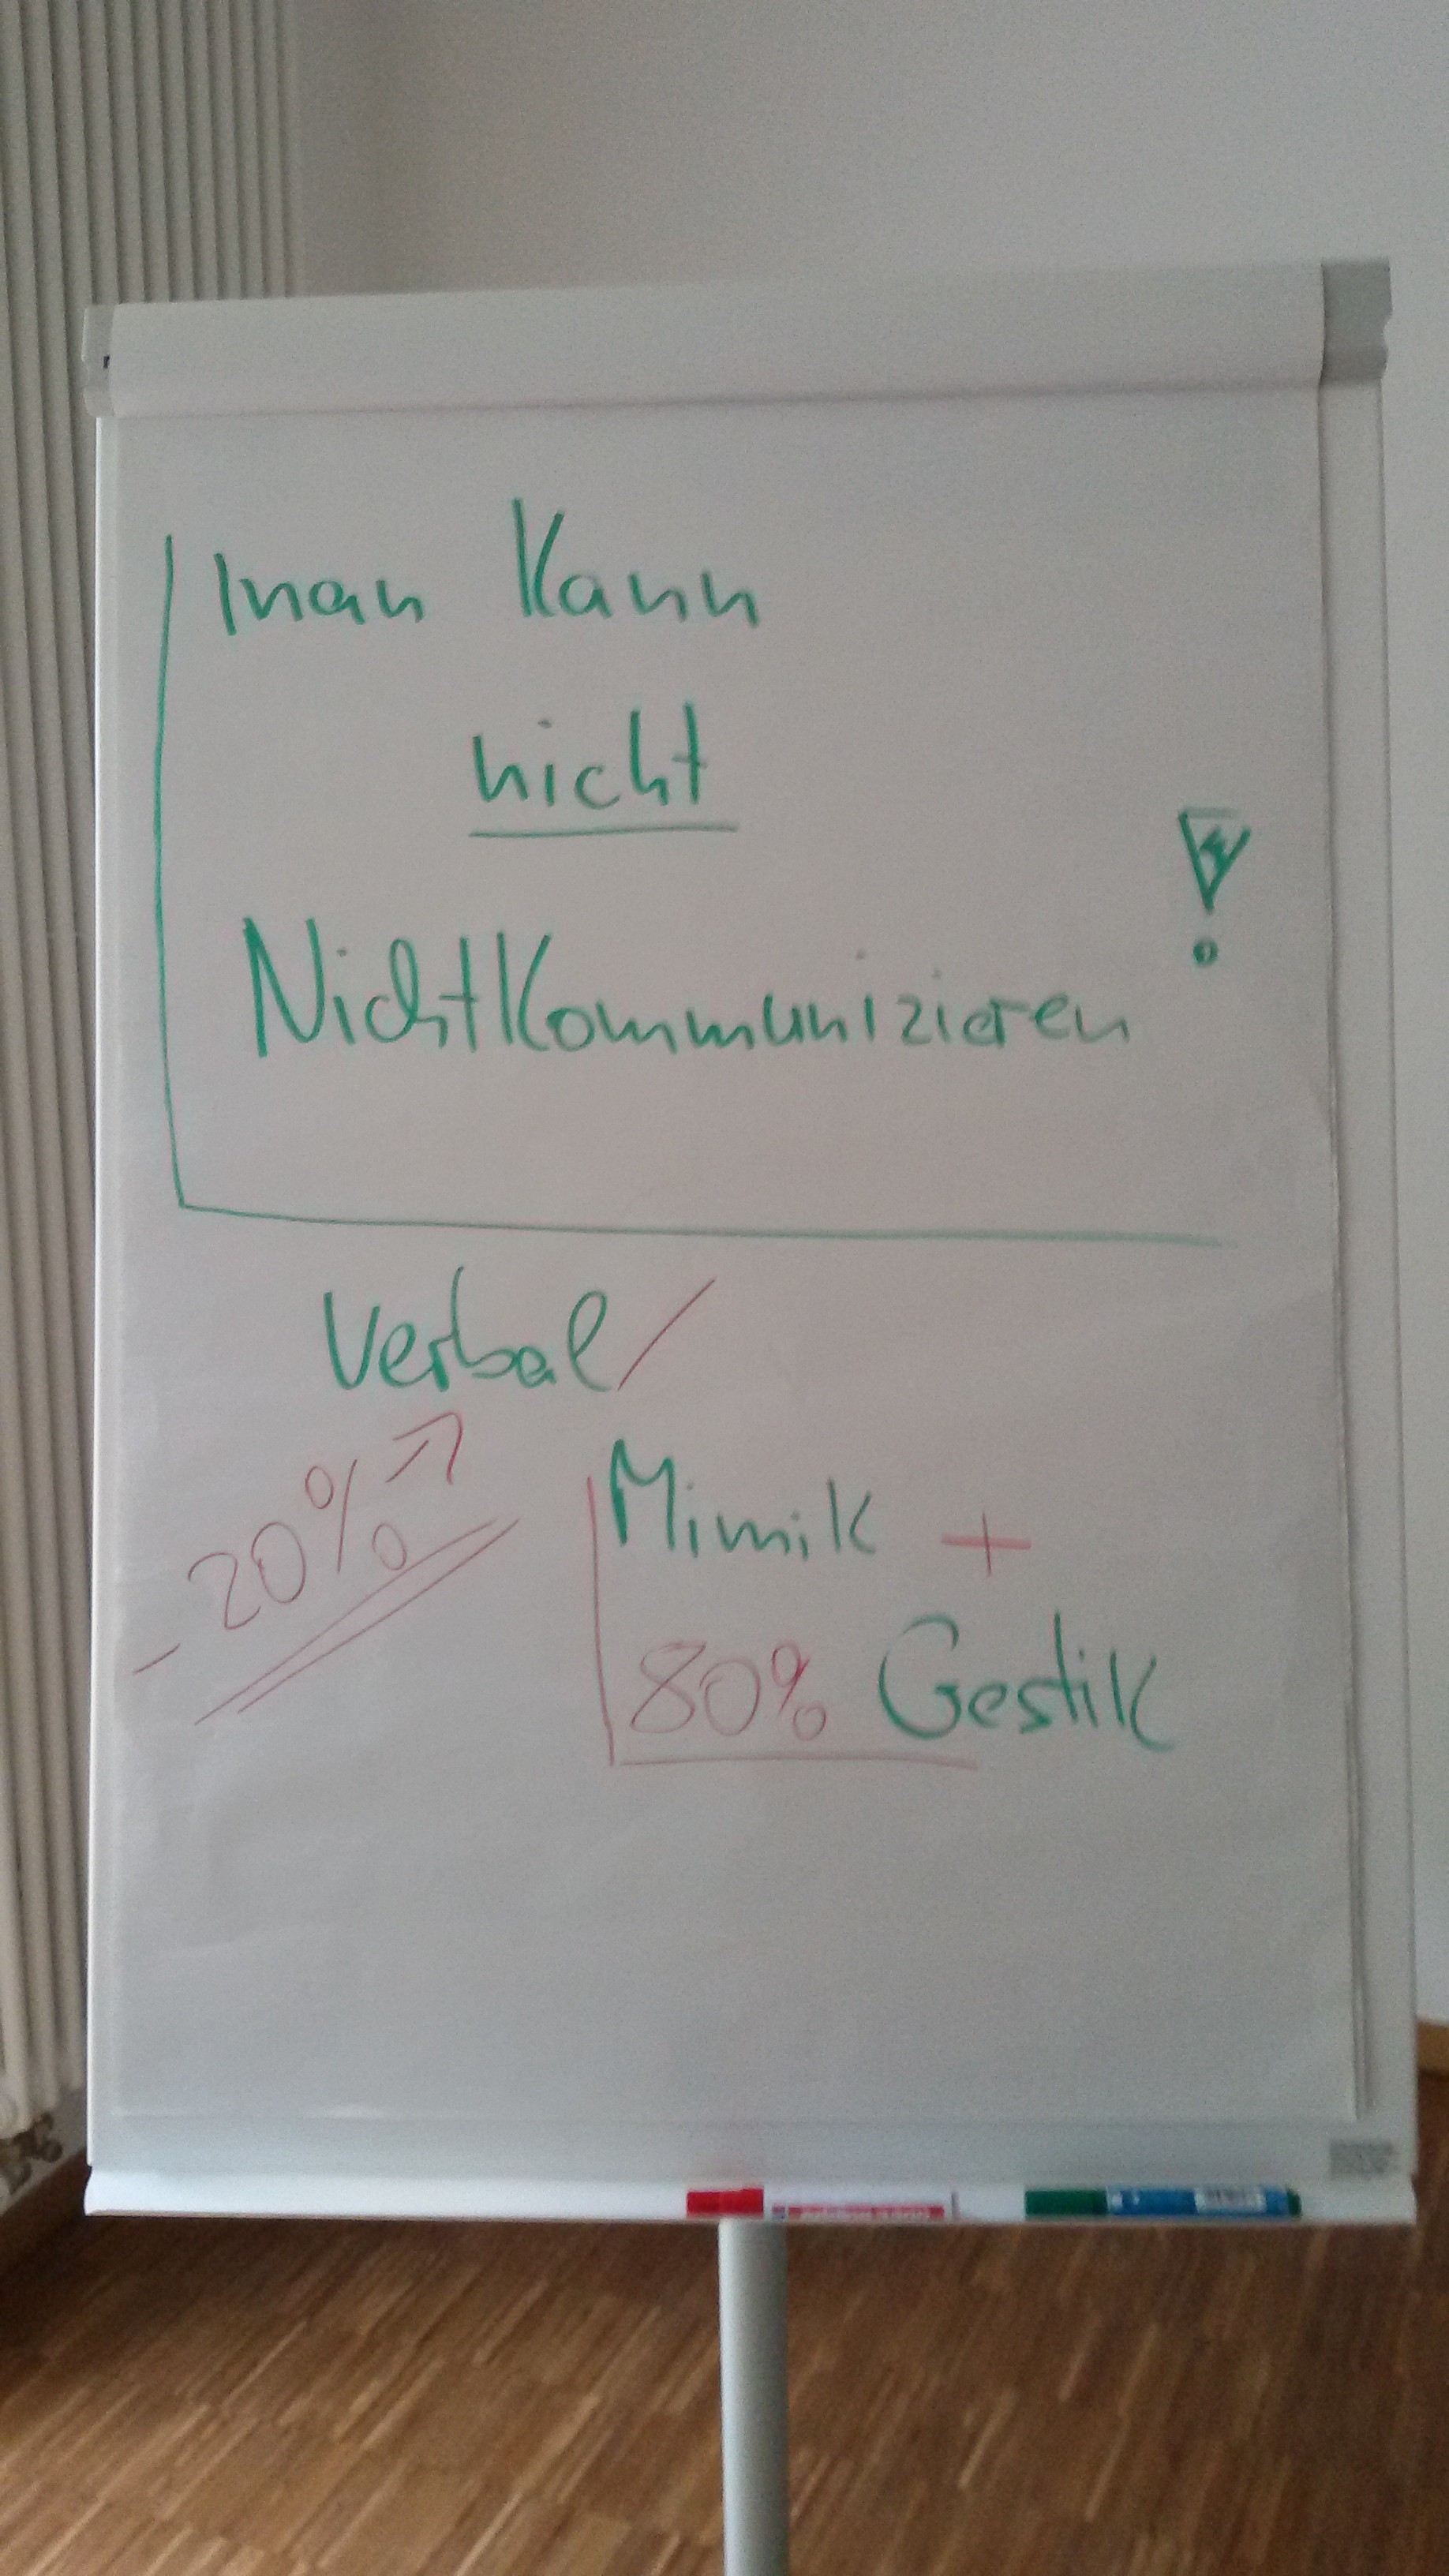 man kann
nicht
Nichtkommunizieren !
Verbal /
- 20%
Mimik +
80% Gestik